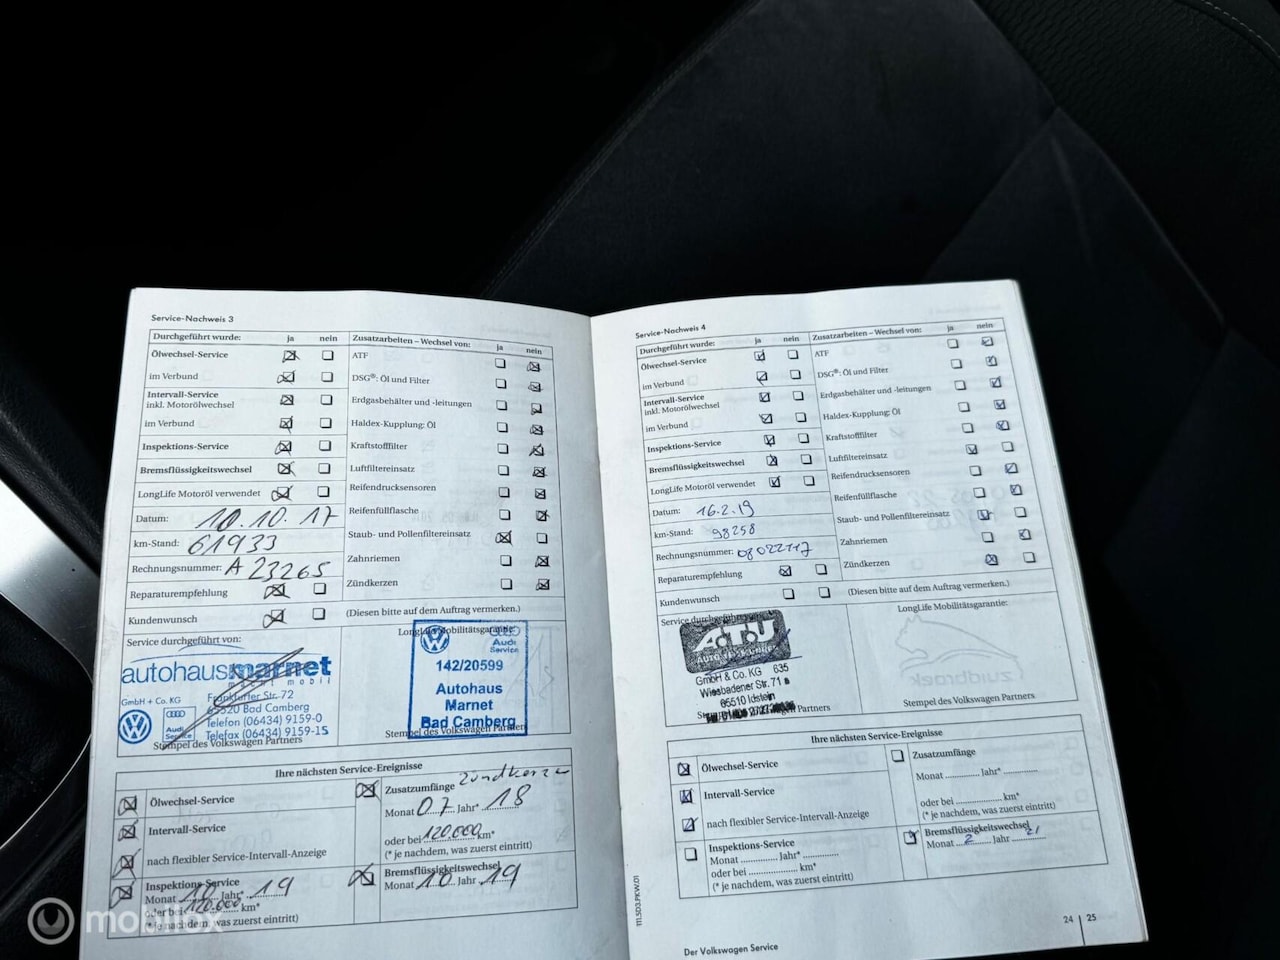 Service-Nachweis 3
Durchgeführt wurde: ja nein
Ölwechsel-Service
im Verbund
Intervall-Service
inkl. Motorölwechsel
im Verbund
Inspektions-Service
Bremsflüssigkeitswechsel
LongLife Motoröl verwendet
Datum: 10.10.17
km-Stand: 61933
Rechnungsnummer: A 23265
Reparaturempfehlung
Kundenwunsch
Zusatzarbeiten – Wechsel von: ja nein
ATF
DSG®: Öl und Filter
Erdgasbehälter und -leitungen
Haldex-Kupplung: Öl
Kraftstofffilter
Luftfiltereinsatz
Reifendrucksensoren
Reifenfüllflasche
Staub- und Pollenfiltereinsatz
Zahnriemen
Zündkerzen
(Diesen bitte auf dem Auftrag vermerken.)
Service durchgeführt von:
autohaus marnet
mobil
GmbH + Co. KG
Frankfurter Str. 72
65520 Bad Camberg
Telefon (06434) 9159-0
Telefax (06434) 9159-15
Audi
Service
Stempel des Volkswagen Partners
LongLife Mobilitätsgarantie:
Audi
Service
142/20599
Autohaus
Marnet
Bad Camberg
Stempel des Volkswagen Partners
Ihre nächsten Service-Ereignisse
Ölwechsel-Service
Intervall-Service
nach flexibler Service-Intervall-Anzeige
Inspektions-Service
Monat 10 Jahr* 19
oder bei 120.000 km*
(*je nachdem, was zuerst eintritt)
Zusatzumfänge Zündkerzen
Monat 07 Jahr* 18
oder bei 120.000 km*
(* je nachdem, was zuerst eintritt)
Bremsflüssigkeitswechsel
Monat 10 Jahr 19
Service-Nachweis 4
Durchgeführt wurde: ja nein
Ölwechsel-Service
im Verbund
Intervall-Service
inkl. Motorölwechsel
im Verbund
Inspektions-Service
Bremsflüssigkeitswechsel
LongLife Motoröl verwendet
Datum: 16.2.19
km-Stand: 98258
Rechnungsnummer: 08022117
Reparaturempfehlung
Kundenwunsch
Zusatzarbeiten – Wechsel von: ja nein
ATF
DSG®: Öl und Filter
Erdgasbehälter und -leitungen
Haldex-Kupplung: Öl
Kraftstofffilter
Luftfiltereinsatz
Reifendrucksensoren
Reifenfüllflasche
Staub- und Pollenfiltereinsatz
Zahnriemen
Zündkerzen
(Diesen bitte auf dem Auftrag vermerken.)
Service durchgeführt von:
A.T.U
GmbH & Co. KG 635
Wiesbadener Str. 71
65510 Idstein
Stempel des Volkswagen Partners
LongLife Mobilitätsgarantie:
zuidbroek
Stempel des Volkswagen Partners
Ihre nächsten Service-Ereignisse
Ölwechsel-Service
Intervall-Service
nach flexibler Service-Intervall-Anzeige
Inspektions-Service
Monat ............ Jahr* ............
oder bei ............ km*
(* je nachdem, was zuerst eintritt)
Zusatzumfänge
Monat ............ Jahr* ............
oder bei ............ km*
(* je nachdem, was zuerst eintritt)
Bremsflüssigkeitswechsel
Monat 2 Jahr 21
111.5D3.PKW.01
Der Volkswagen Service
24 | 25
mobilox